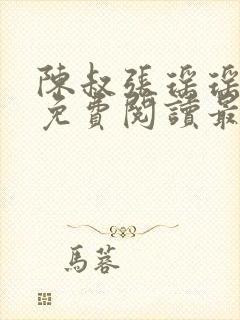 陳叔張瑤瑤
免費閱讀最
馬蓉